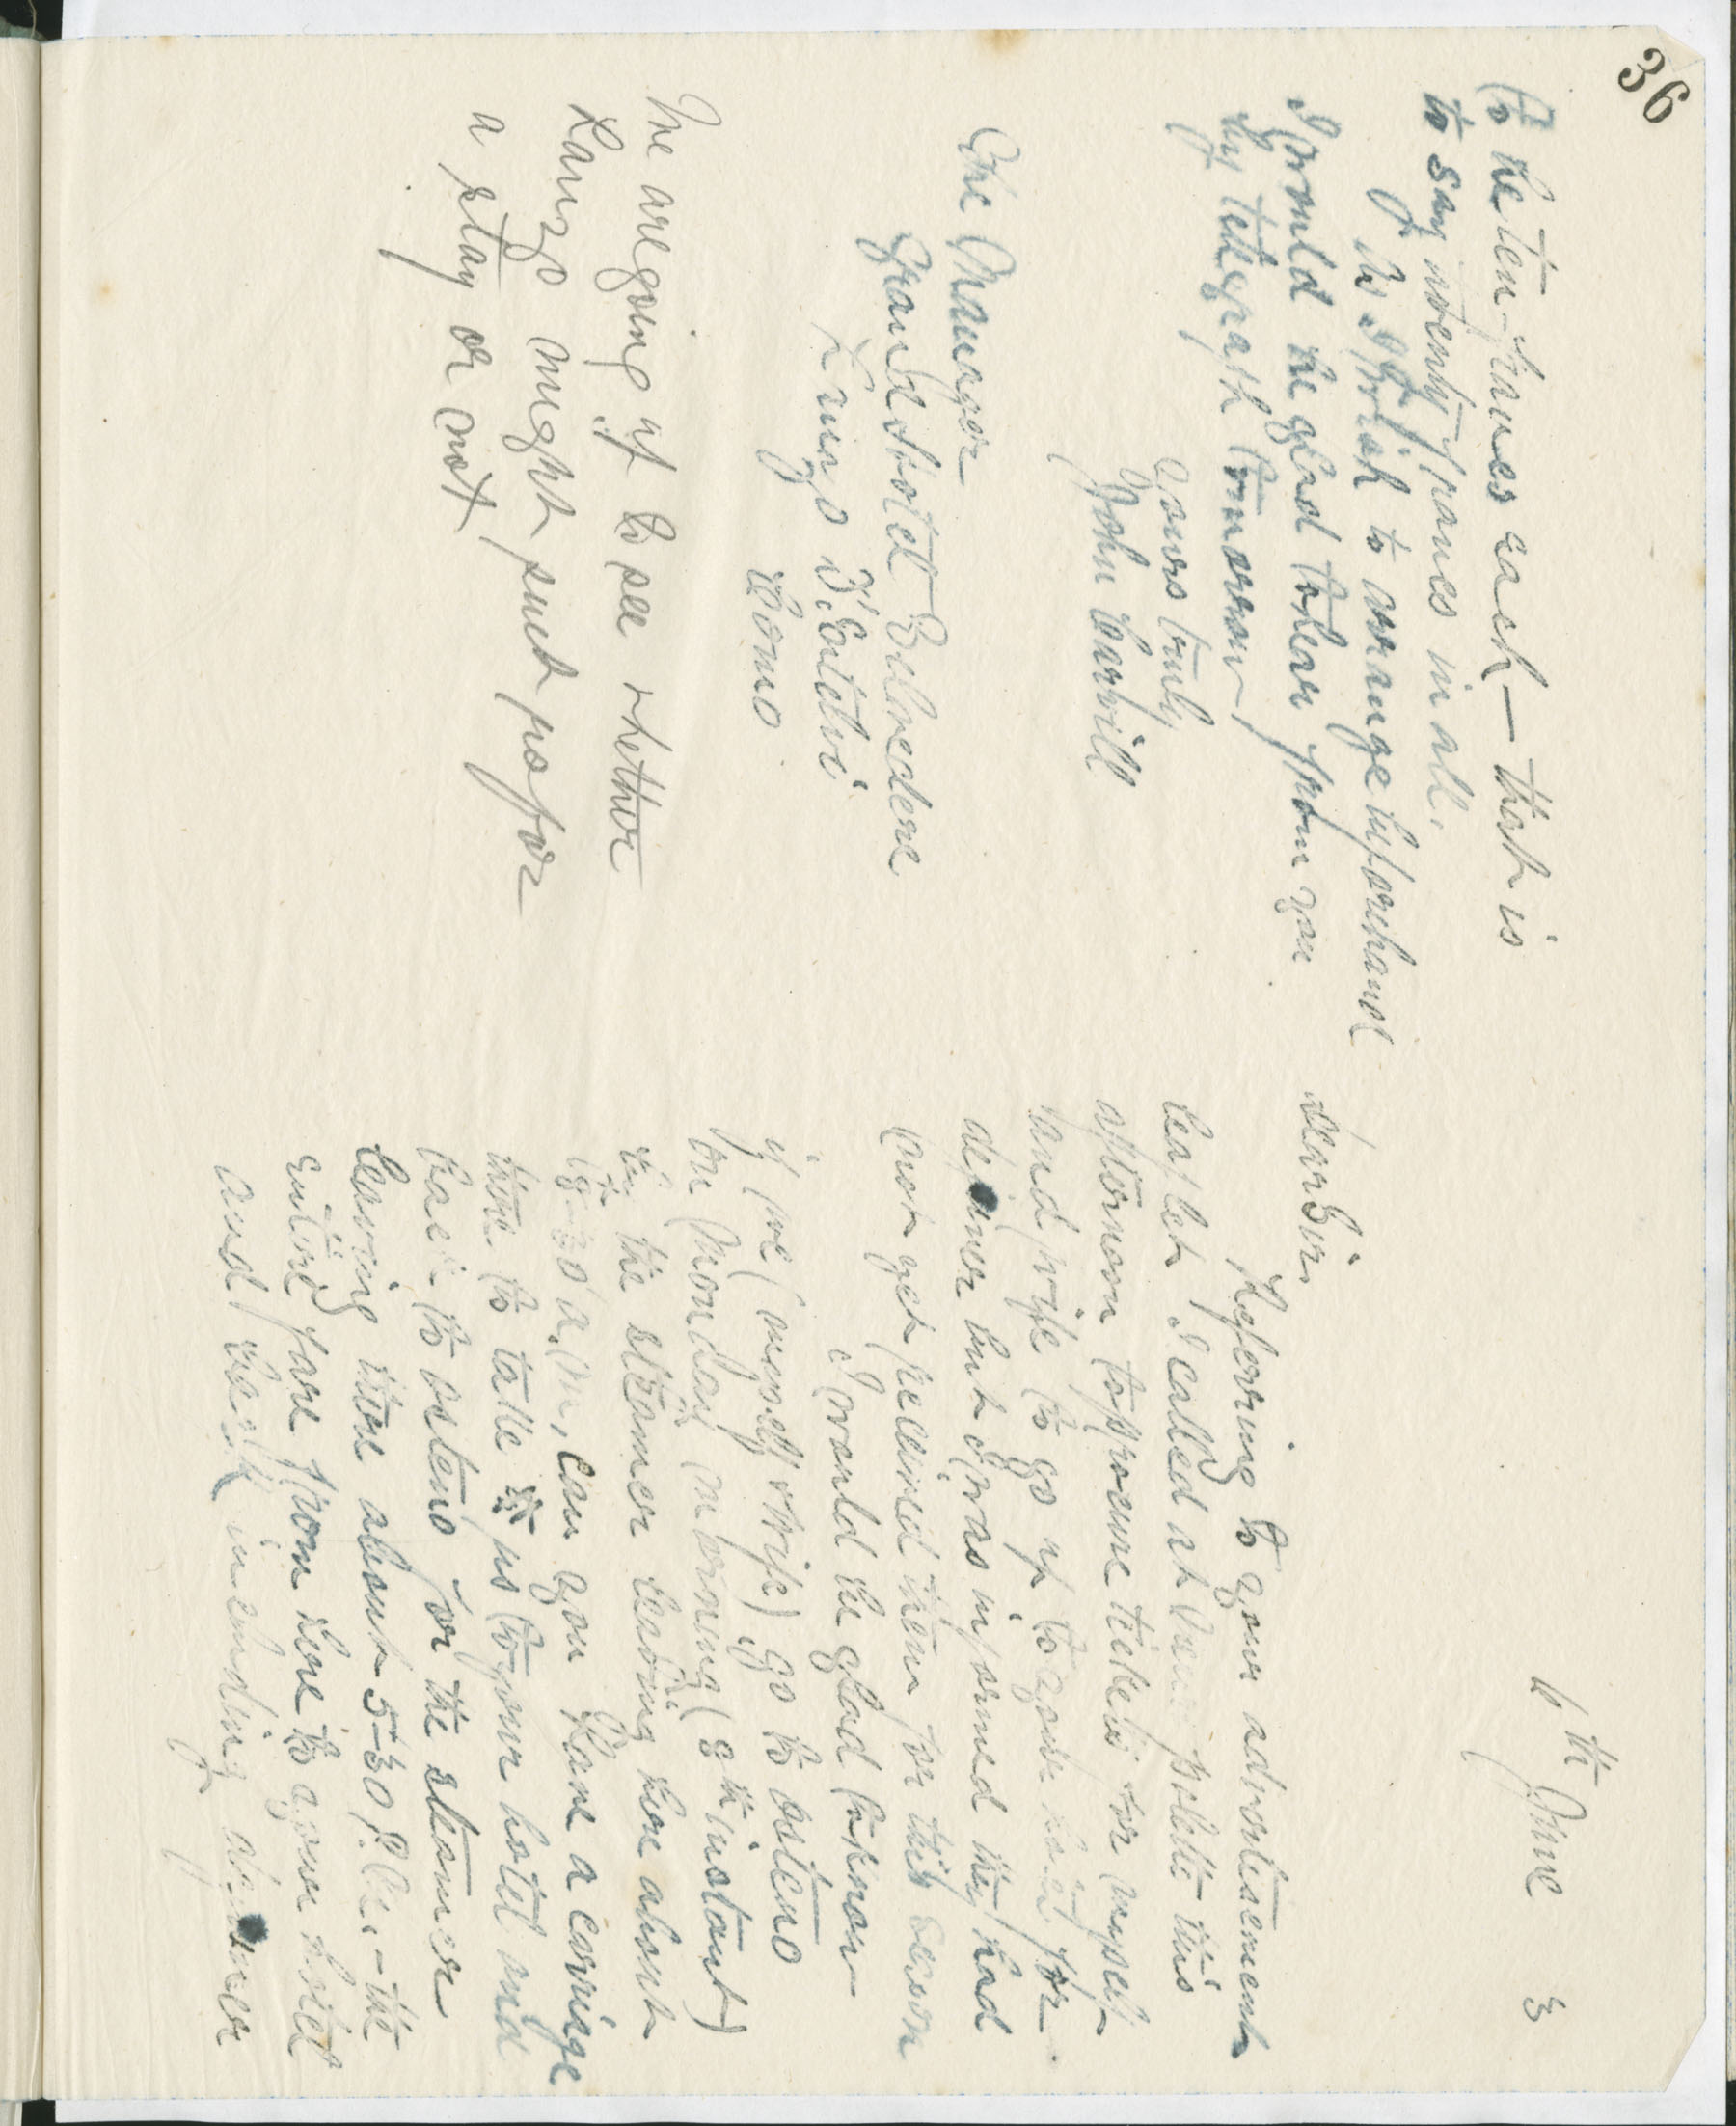 36
6th June 3
dear Sir,
Referring to your advertisement
leaflet I called at polette this
afternoon to procure tickets for myself
and wife to go up to your hotel for
dejeuner but I was informed they had
not yet received them for this season
I would be glad to know
if we (myself & wife) go to Osteno
on Monday morning (8th instant)
by the steamer leaving here about
30 a.m. can you have a carriage
there to take us to your hotel and
back to Osteno for the steamer
leaving there about 5-30 P.M. - the
entire fare from here to your hotel
and back including dejeuner
to be ten francs each - that is
to say twenty francs in all.
As I wish to arrange beforehand
I would be glad to hear from you
by telegraph tomorrow
Yours truly
John Carvill
The Manager
Grand Hotel Belvedere
Lanzo D'Intelvi
Como
We are going up to see whether
Lanzo might suit us for
a stay or not